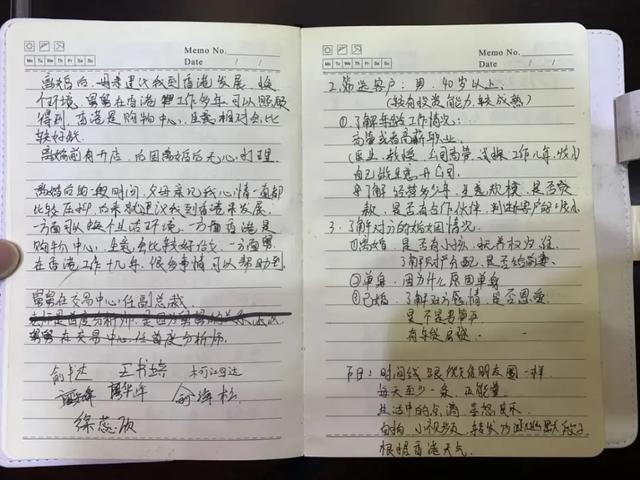 Memo No.
Mo Tu We Th Fr Sa Su
Date / /
离婚后，母亲建议我到香港发展。换
个环境。舅舅在香港工作多年可以照顾
得到，香港是购物中心，生意相对会比
较好做
离婚前有开店，内因离婚后无心打理
离婚后的一段时间，父母亲见我心情一直都
比较压抑，母亲就建议我到香港来发展。
一方面可以换个生活环境，一方面香港是
购物中心，生意会比较好做，一方面舅舅
在香港工作十几年，很多事情可以帮助到
舅舅在交易中心任副总裁
舅舅在交易中心，任首度分析师。
王书培
俞海松
徐蕊欣
Memo No.
Mo Tu We Th Fr Sa Su
Date / /
2. 筛选客户：男，40岁以上，
（较有投资能力，较成熟）
①了解年龄工作情况：
高管或者高薪职业，
（医业，教授，公司高管，谈谈工作几年，收入）
自己做生意，开公司
了解经营多少年，生意规模，是否贷
款，是否有合作伙伴，判断客户的大小
3. 了解对方的婚姻因情况。
①离婚，是否有小孩，抚养权为谁
了解财产分配，是否给前妻
②单身，因为什么原因单身
③已婚，了解双方感情，是否恩爱
是不是要离
有年终
节日：时间线跟微信朋友圈一样
每天至少一条，正能量
生活中的点滴，喜怒哀乐
自拍，小视频，转发幽默段子
根据香港天气